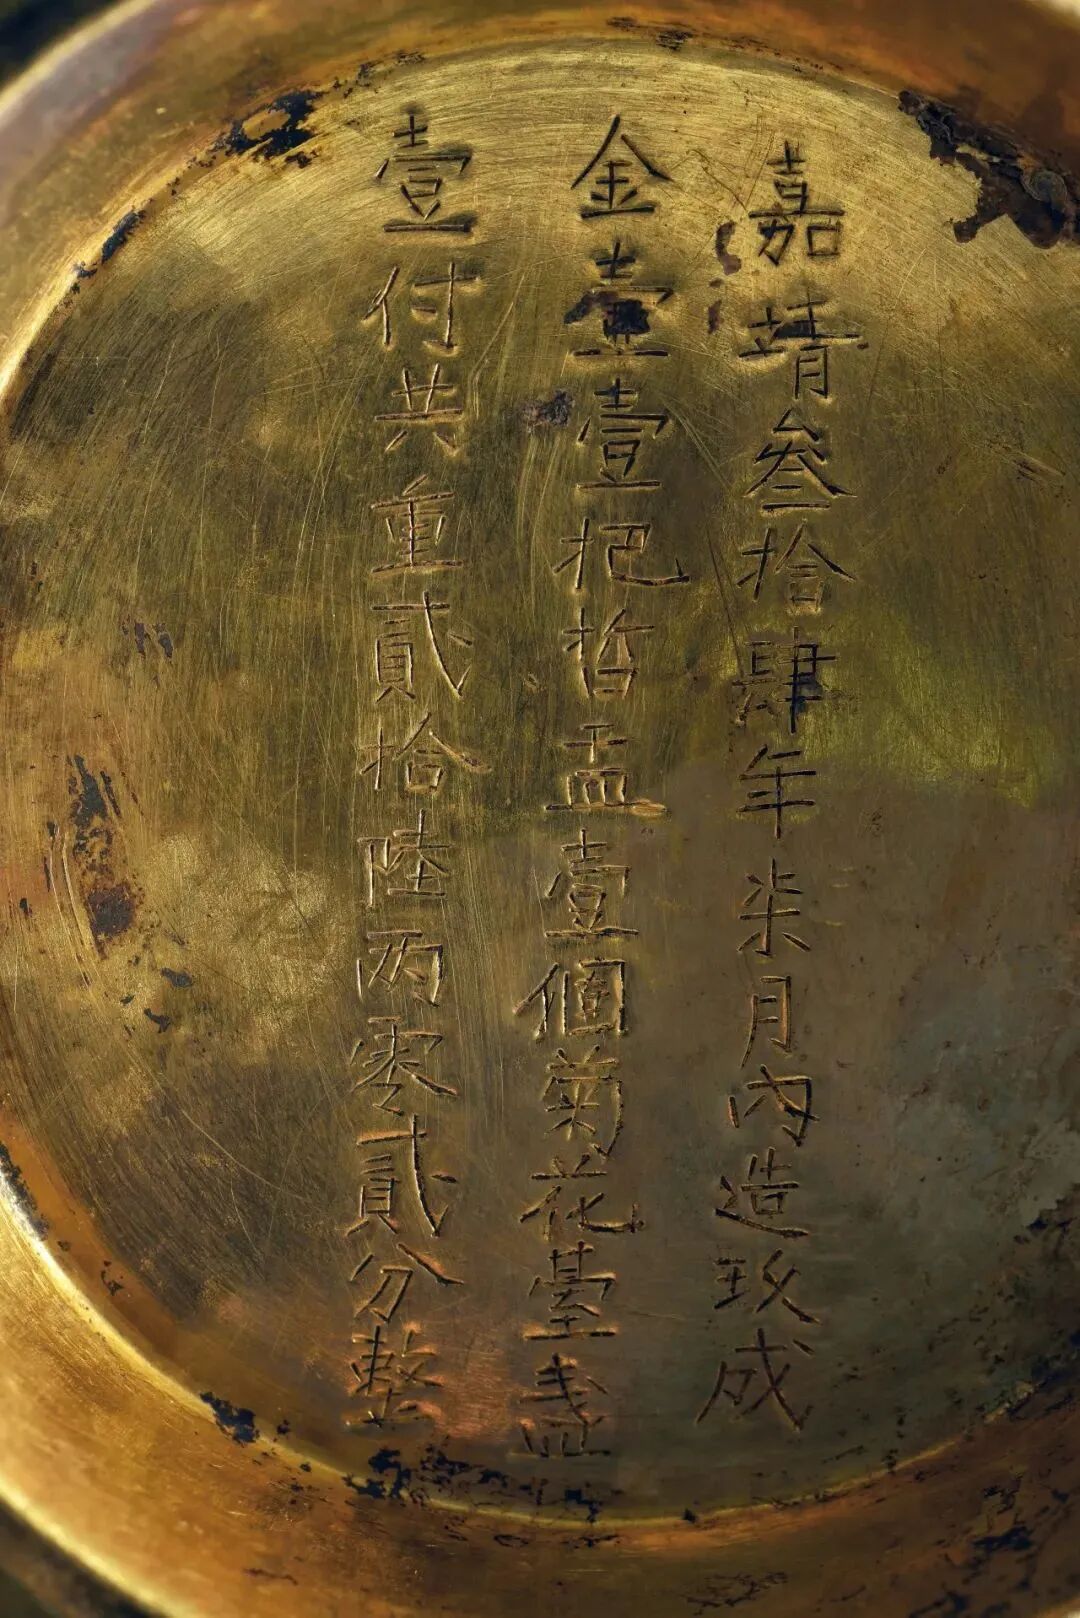 嘉靖叁拾肆年柒月內造玖成
金壺壹把哲盂壹個菊花臺盞
壹付共重貳拾陸两零貳分整